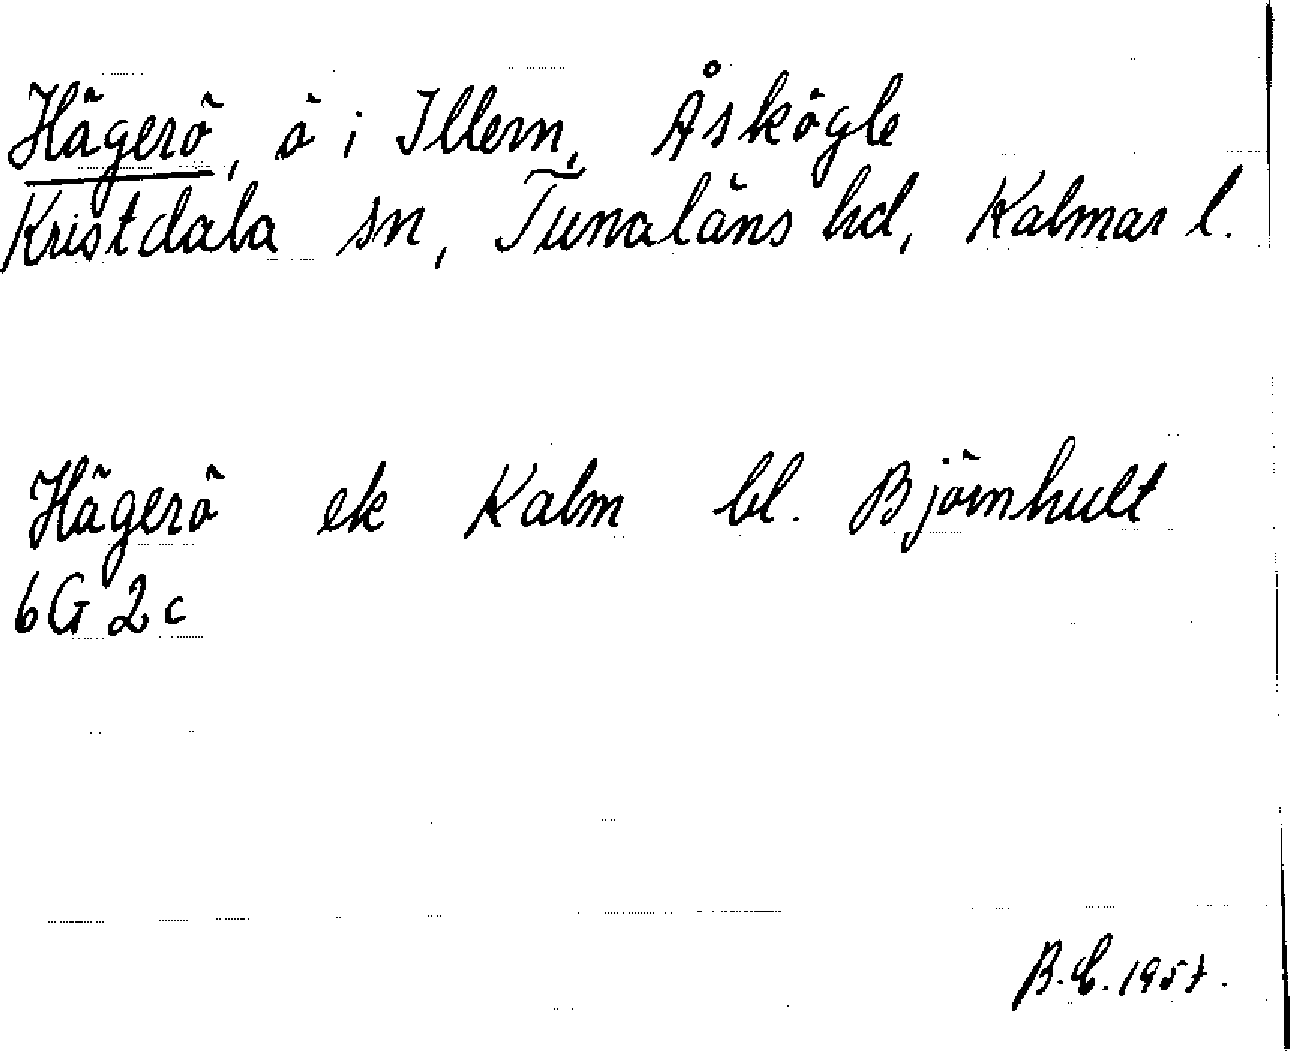 Hägerö, ö i Illern, Åskögle
Kristdala sn, Tunaläns hd, Kalmar l.
Hägerö ek Kalm bl. Björnhult
6G 2c
B.E. 1957.